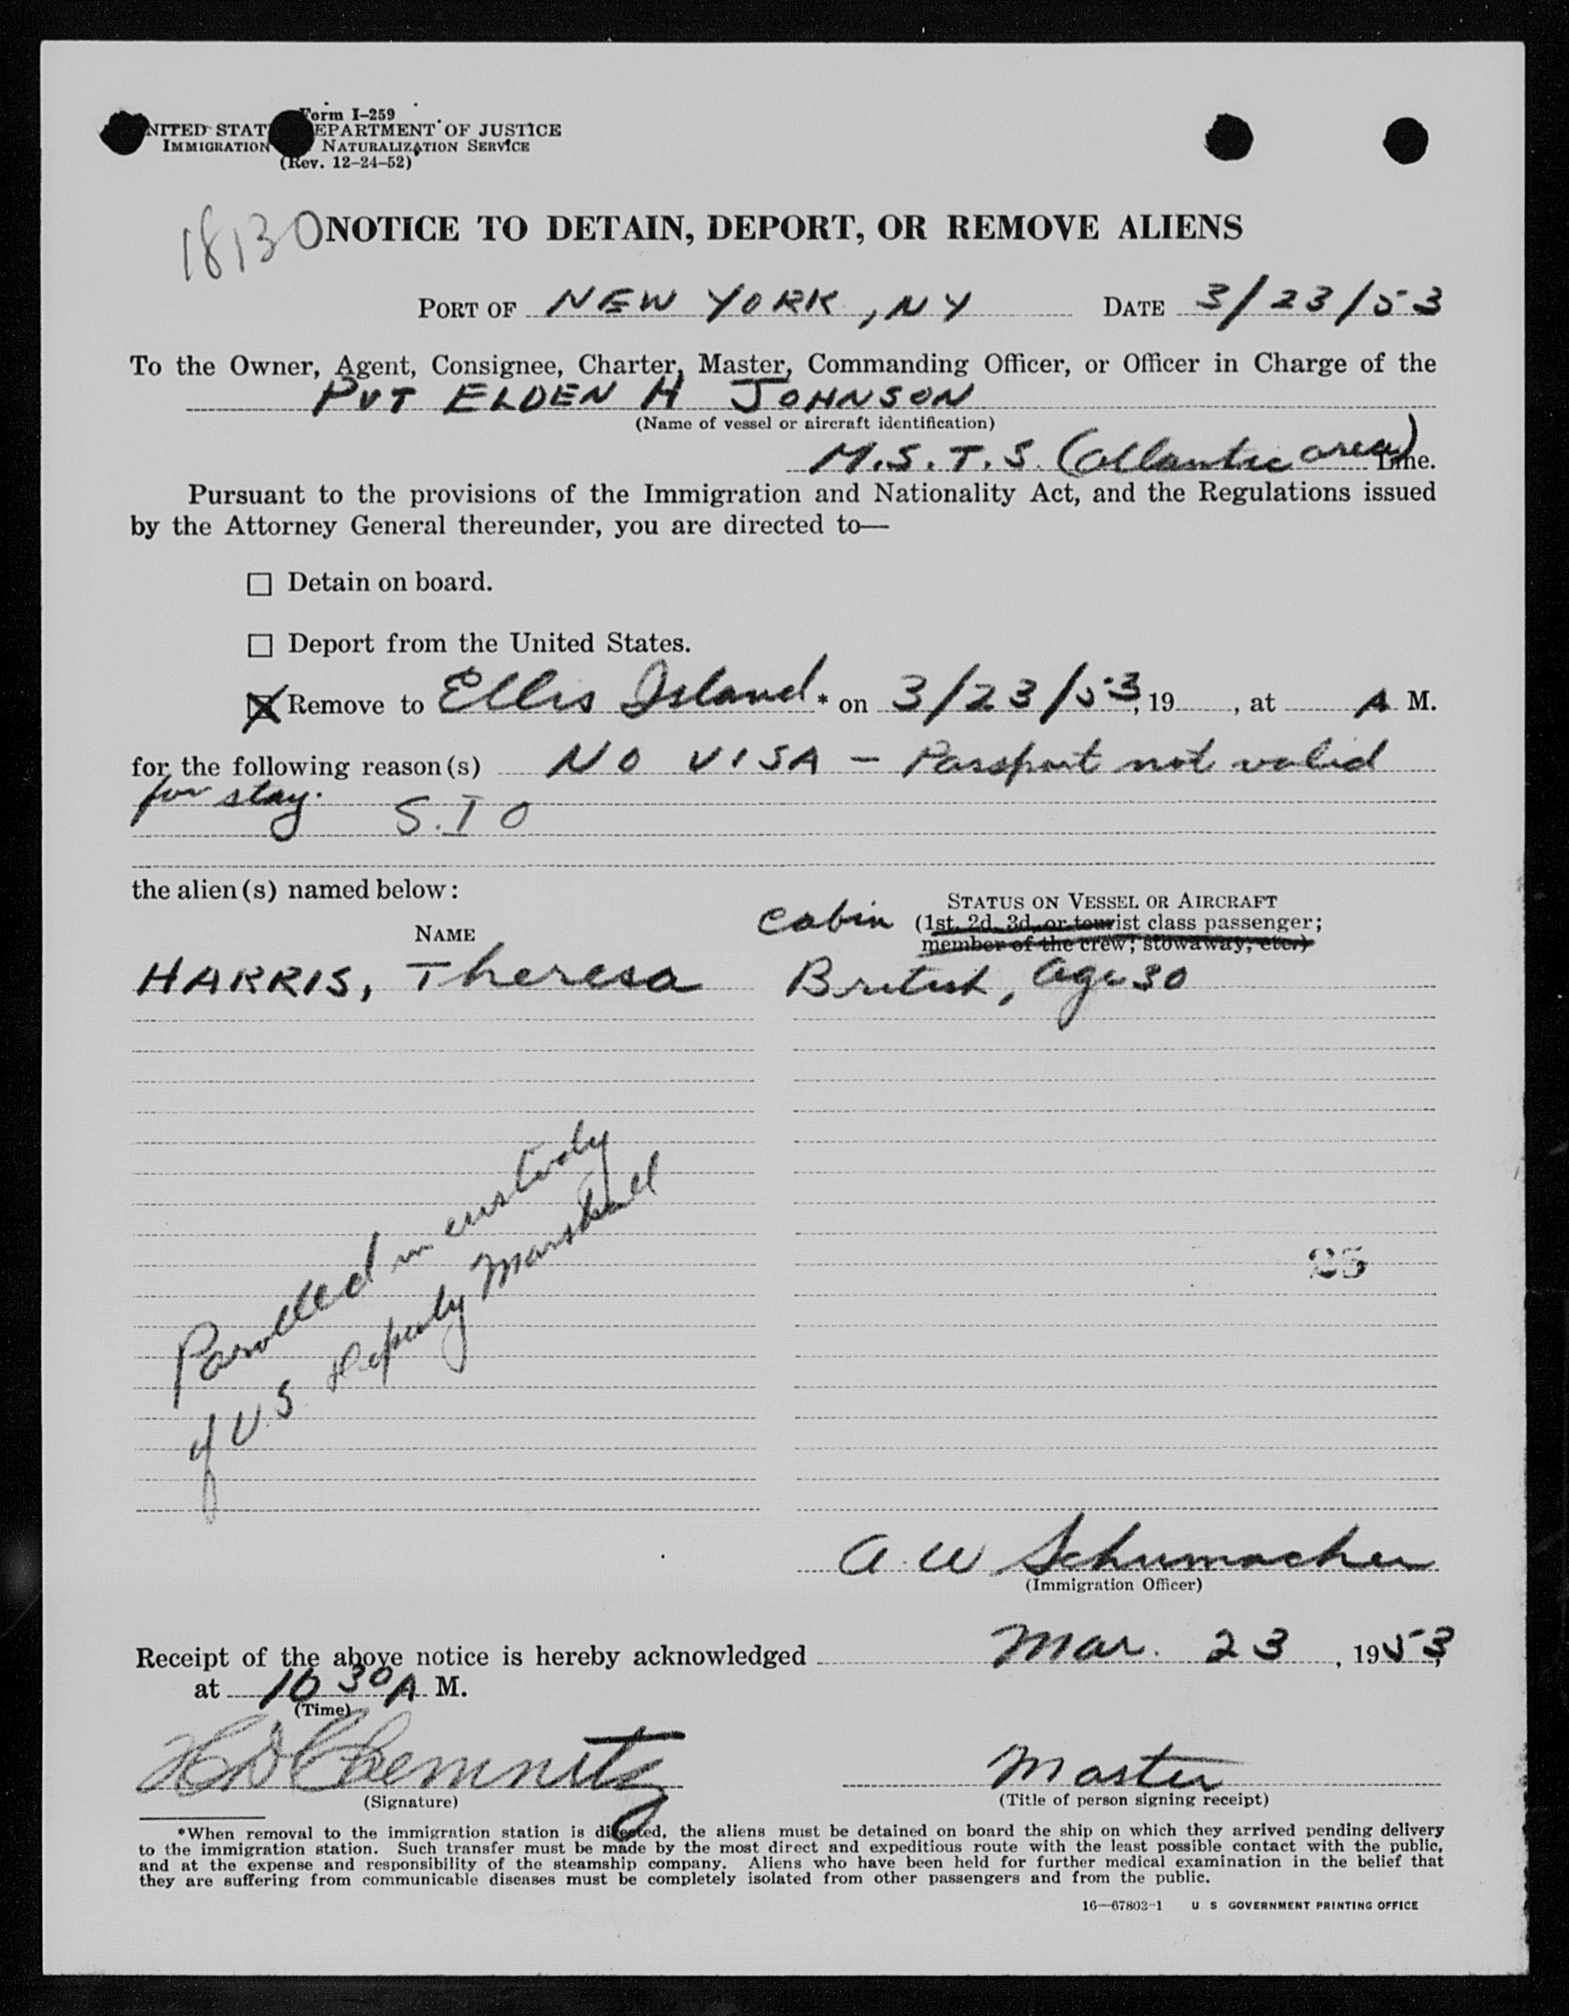 Form I-259
UNITED STATES DEPARTMENT OF JUSTICE
IMMIGRATION NATURALIZATION SERVICE
(Rev. 12-24-52)
18130
NOTICE TO DETAIN, DEPORT, OR REMOVE ALIENS
PORT OF NEW YORK, NY DATE 3/23/53
To the Owner, Agent, Consignee, Charter, Master, Commanding Officer, or Officer in Charge of the
PVT ELDEN H JOHNSON
(Name of vessel or aircraft identification)
M.S.T.S. (Atlantic area) Line.
Pursuant to the provisions of the Immigration and Nationality Act, and the Regulations issued
by the Attorney General thereunder, you are directed to—
☐ Detain on board.
☐ Deport from the United States.
☒ Remove to Ellis Island * on 3/23/53, 19 , at A M.
for the following reason(s) NO VISA - Passport not valid
for stay. S.I O
the alien(s) named below:
STATUS ON VESSEL OR AIRCRAFT
cabin (1st, 2d, 3d, or tourist class passenger;
NAME member of the crew; stowaway, etc.)
HARRIS, Theresa British, age 30
Parolled in custody
of U.S. Deputy Marshall
25
A. W Schumacher
(Immigration Officer)
Receipt of the above notice is hereby acknowledged Mar. 23, 1953,
at 10 30 A M.
(Time)
H D Chemnitz Master
(Signature) (Title of person signing receipt)
*When removal to the immigration station is directed, the aliens must be detained on board the ship on which they arrived pending delivery
to the immigration station. Such transfer must be made by the most direct and expeditious route with the least possible contact with the public,
and at the expense and responsibility of the steamship company. Aliens who have been held for further medical examination in the belief that
they are suffering from communicable diseases must be completely isolated from other passengers and from the public.
16—67803-1 U S GOVERNMENT PRINTING OFFICE